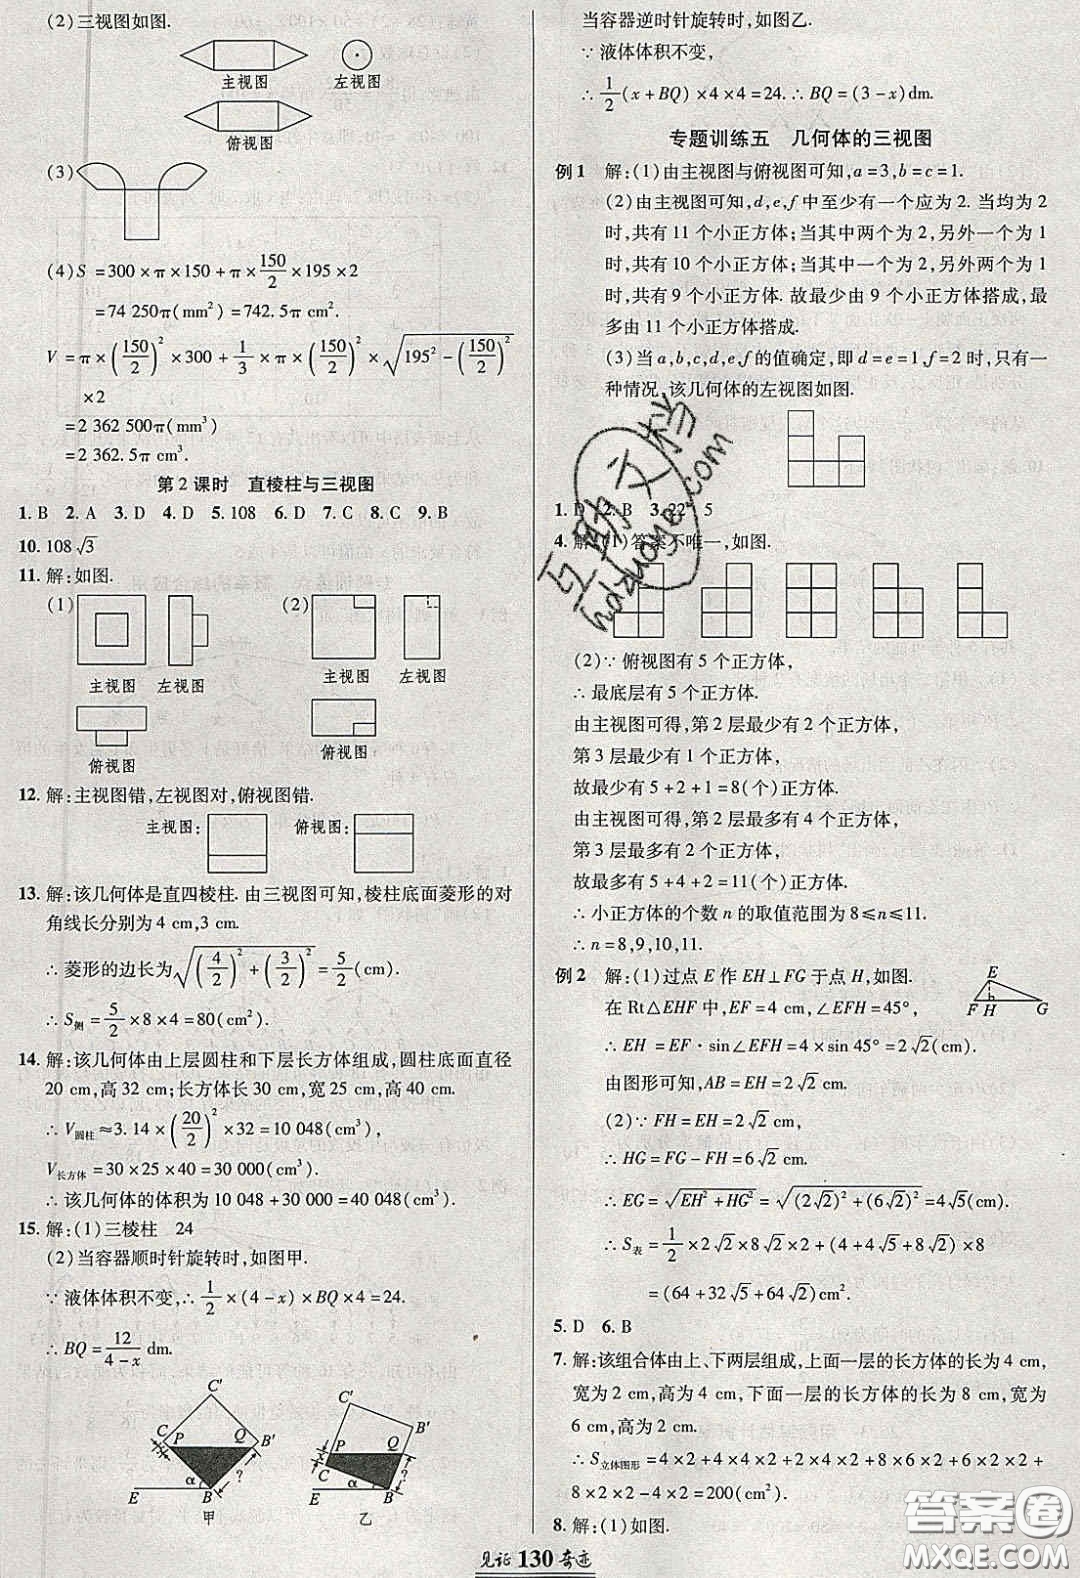 (2)三视图如图.
主视图 左视图
俯视图
(3)
(4)S =300×π×150+π×150/2×195×2
=74 250π(mm²)=742.5π cm².
V =π×(150/2)²×300+1/3×π×(150/2)²×√(195²-(150/2)²)
×2
=2 362 500π(mm³)
=2 362.5π cm³.
第2课时 直棱柱与三视图
1. B 2. A 3. D 4. D 5. 108 6. D 7. C 8. C 9. B
10. 108√3
11. 解:如图.
(1) (2)
主视图 左视图 主视图 左视图
俯视图 俯视图
12. 解:主视图错,左视图对,俯视图错.
主视图: 俯视图:
13. 解:该几何体是直四棱柱. 由三视图可知,棱柱底面菱形的对
角线长分别为 4 cm,3 cm.
∴ 菱形的边长为√((4/2)²+(3/2)²)=5/2(cm).
∴ S侧=5/2×8×4=80(cm²).
14. 解:该几何体由上层圆柱和下层长方体组成,圆柱底面直径
20 cm,高 32 cm;长方体长 30 cm,宽 25 cm,高 40 cm.
∴ V圆柱≈3.14×(20/2)²×32=10 048(cm³),
V长方体=30×25×40=30 000(cm³).
∴ 该几何体的体积为 10 048+30 000=40 048(cm³).
15. 解:(1)三棱柱 24
(2)当容器顺时针旋转时,如图甲.
∵ 液体体积不变,∴ 1/2×(4-x)×BQ×4=24.
∴ BQ=12/(4-x) dm.
C' C P Q B' x α ? E B 甲
C' B' P Q x C α ? E B 乙
当容器逆时针旋转时,如图乙.
∵ 液体体积不变,
∴ 1/2(x+BQ)×4×4=24. ∴ BQ=(3-x)dm.
专题训练五 几何体的三视图
例1 解:(1)由主视图与俯视图可知,a=3,b=c=1.
(2)由主视图可知,d,e,f 中至少有一个应为 2. 当均为 2
时,共有 11 个小正方体;当其中两个为 2,另外一个为 1
时,共有 10 个小正方体;当其中一个为 2,另外两个为 1
时,共有 9 个小正方体. 故最少由 9 个小正方体搭成,最
多由 11 个小正方体搭成.
(3)当 a,b,c,d,e,f 的值确定,即 d=e=1,f=2 时,只有一
种情况,该几何体的左视图如图.
1. D 2. B 3. 22 5
4. 解:(1)答案不唯一,如图.
(2)∵ 俯视图有 5 个正方体,
∴ 最底层有 5 个正方体.
由主视图可得,第 2 层最少有 2 个正方体,
第 3 层最少有 1 个正方体,
故最少有 5+2+1=8(个)正方体.
由主视图可得,第 2 层最多有 4 个正方体,
第 3 层最多有 2 个正方体,
故最多有 5+4+2=11(个)正方体.
∴ 小正方体的个数 n 的取值范围为 8≤n≤11.
∴ n=8,9,10,11.
例2 解:(1)过点 E 作 EH⊥FG 于点 H,如图.
在 Rt△EHF 中,EF=4 cm,∠EFH=45°,
E F H G
∴ EH=EF·sin∠EFH=4×sin 45°=2√2(cm).
由图形可知,AB=EH=2√2 cm.
(2)∵ FH=EH=2√2 cm,
∴ HG=FG-FH=6√2 cm.
∴ EG=√(EH²+HG²)=√((2√2)²+(6√2)²)=4√5(cm).
∴ S表=1/2×2√2×8√2×2+(4+4√5+8√2)×8
=(64+32√5+64√2)cm².
5. D 6. B
7. 解:该组合体由上、下两层组成,上面一层的长方体的长为 4 cm,
宽为 2 cm,高为 4 cm,下面一层的长方体的长为 8 cm,宽为
6 cm,高为 2 cm.
∴ S立体图形=4×2+4×4×2+2×4×2+8×6×2+6×2×2+
8×2×2-4×2=200(cm²).
8. 解:(1)如图.
见证 130 奇迹
互助文档
hdzuoye.com
答案圈
MXQE.COM